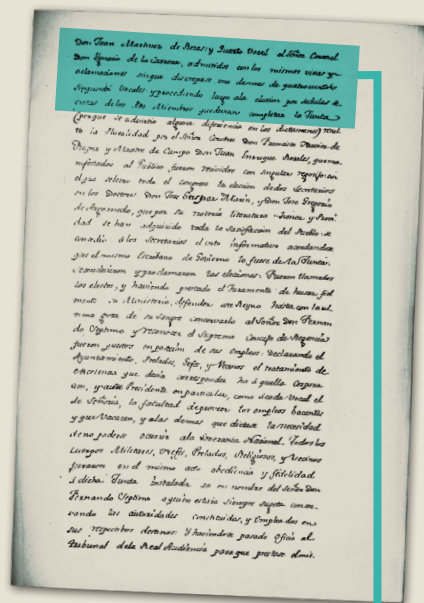 Don Juan Martinez de Rosas; y Quarto Vocal el Señor Coronel
Don Ignacio de la Carrera, admitidos con los mismos vivas y
aclamaciones sin que discrepase uno de mas de quatrocientos
cinquenta Vocales y procediendo luego ala eleccion por sedulas
de los Miembros que devian completar la Junta
(porque se advirtio alguna diferiencia en los dictamenes) result
to la pluralidad por el Señor Don Francisco Xavier de
Reyna y Maestre de Campo Don Juan Enrrique Rosales, que ma
nifestados al Publico fueron recividos con singular regocijo con
el que selebro todo el congreso la eleccion de dos Secretarios
en los Doctores Don Jose Gaspar Marin, y Don Jose Gregorio
de Argomedo, que por su notoria literatura, honor y Provi
dad se han adquirido toda la satisfacion del Pueblo: se
concedio a los Secretarios el voto informativo acordandose
que el mismo Escribano de Govierno lo fuese de la Junta:
y proclamaron las elecciones: Fueron llamados
los electos, y haviendo prestado el Juramento de husar fiel
mente su Ministerio, defender este Reyno hasta con la ul
tima gota de su sangre conservarlo al Señor Don Fernan
do Septimo y reconocer el Supremo Concejo de Regencia
fueron puestos en posecion de sus Empleos: declarando el
Ayuntamiento, Prelados, Gefes, y Vecinos el tratamiento de
excelencia que devia corresponder ha aquella Corpora
cion, y a su Presidente en particular, como a cada Vocal el
de Señoria, la facultad de proveer los empleos bacantes
y que vacaren, y alas demas que dictase la necesidad
de no poderse ocurrir ala Soverania Nacional. Todos los
Cuerpos Militares, Prelados, Religiosos, y Vecinos
juraron en el mismo acto obediencia y fidelidad
a dicha Junta instalada asi en nombre del Señor Don
Fernando Septimo a quien estaria siempre sugeta conser
vando las autoridades constituidas, y Empleados en
sus respectivos destinos: Y haviendose pasado Oficio al
Tribunal dela Real Audiencia para que prestase el mis.